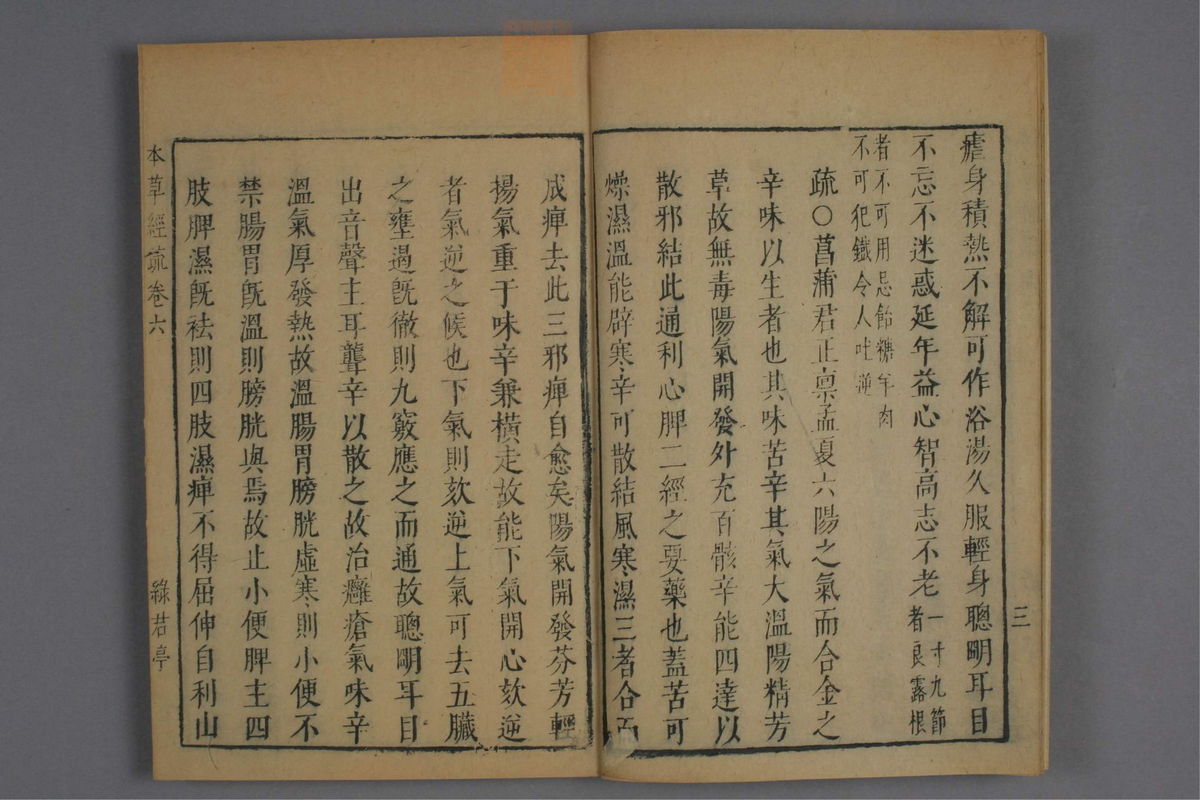 瘧身積熱不解可作浴湯久服輕身聰明耳目
不忘不迷惑延年益心智高志不老一寸九節者良露根
者不可用忌飴糖羊肉
不可犯鐵令人吐逆
疏○菖蒲君正禀孟夏六陽之氣而合金之
辛味以生者也其味苦辛其氣大溫陽精芳
草故無毒陽氣開發外充百骸辛能四達以
散邪結此通利心脾二經之要藥也蓋苦可
燥濕溫能辟寒辛可散結風寒濕三者合而
三
成痺去此三邪痺自愈矣陽氣開發芬芳輕
揚氣重于味辛兼橫走故能下氣開心欬逆
者氣逆之候也下氣則欬逆上氣可去五臟
之壅遏旣徹則九竅應之而通故聰明耳目
出音聲主耳聾辛以散之故治癰瘡氣味辛
溫氣厚發熱故溫腸胃膀胱虛寒則小便不
禁腸胃旣溫則膀胱與焉故止小便脾主四
肢脾濕旣祛則四肢濕痺不得屈伸自利山
本草經疏卷六
綠君亭